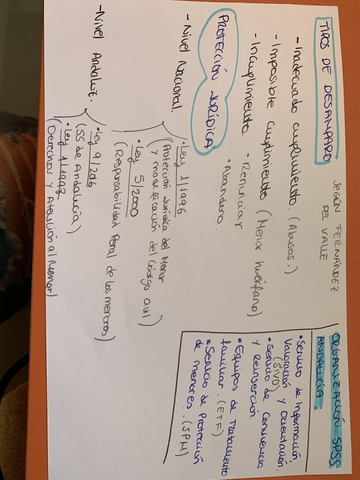 TIPOS DE DESAMPARO
SEGÚN FERNÁNDEZ
DEL VALLE
- Inadecuado cumplimiento. (Abusos.)
- Imposible cumplimiento (Menor huérfano)
- Incumplimiento • Renunciar
• Abandono
PROTECCIÓN JURÍDICA
- Nivel Nacional.
• Ley 1/1996
(Protección Jurídica del Menor
y modificación del Código civil)
• Ley 5/2000
(Responsabilidad Penal de los menores)
- Nivel Andaluz.
• Ley 9/2016
(SS de Andalucía)
• Ley 1/1998
(Derechos y Atención al Menor)
ORGANIZACIÓN SPSS
ANDALUCÍA.
• Servicio de Información,
Valoración y Orientación
(SIVO)
• Servicio de Convivencia
y Reinserción
• Equipos de Tratamiento
familiar. (ETF)
• Servicio de Protección
de menores. (SPM)